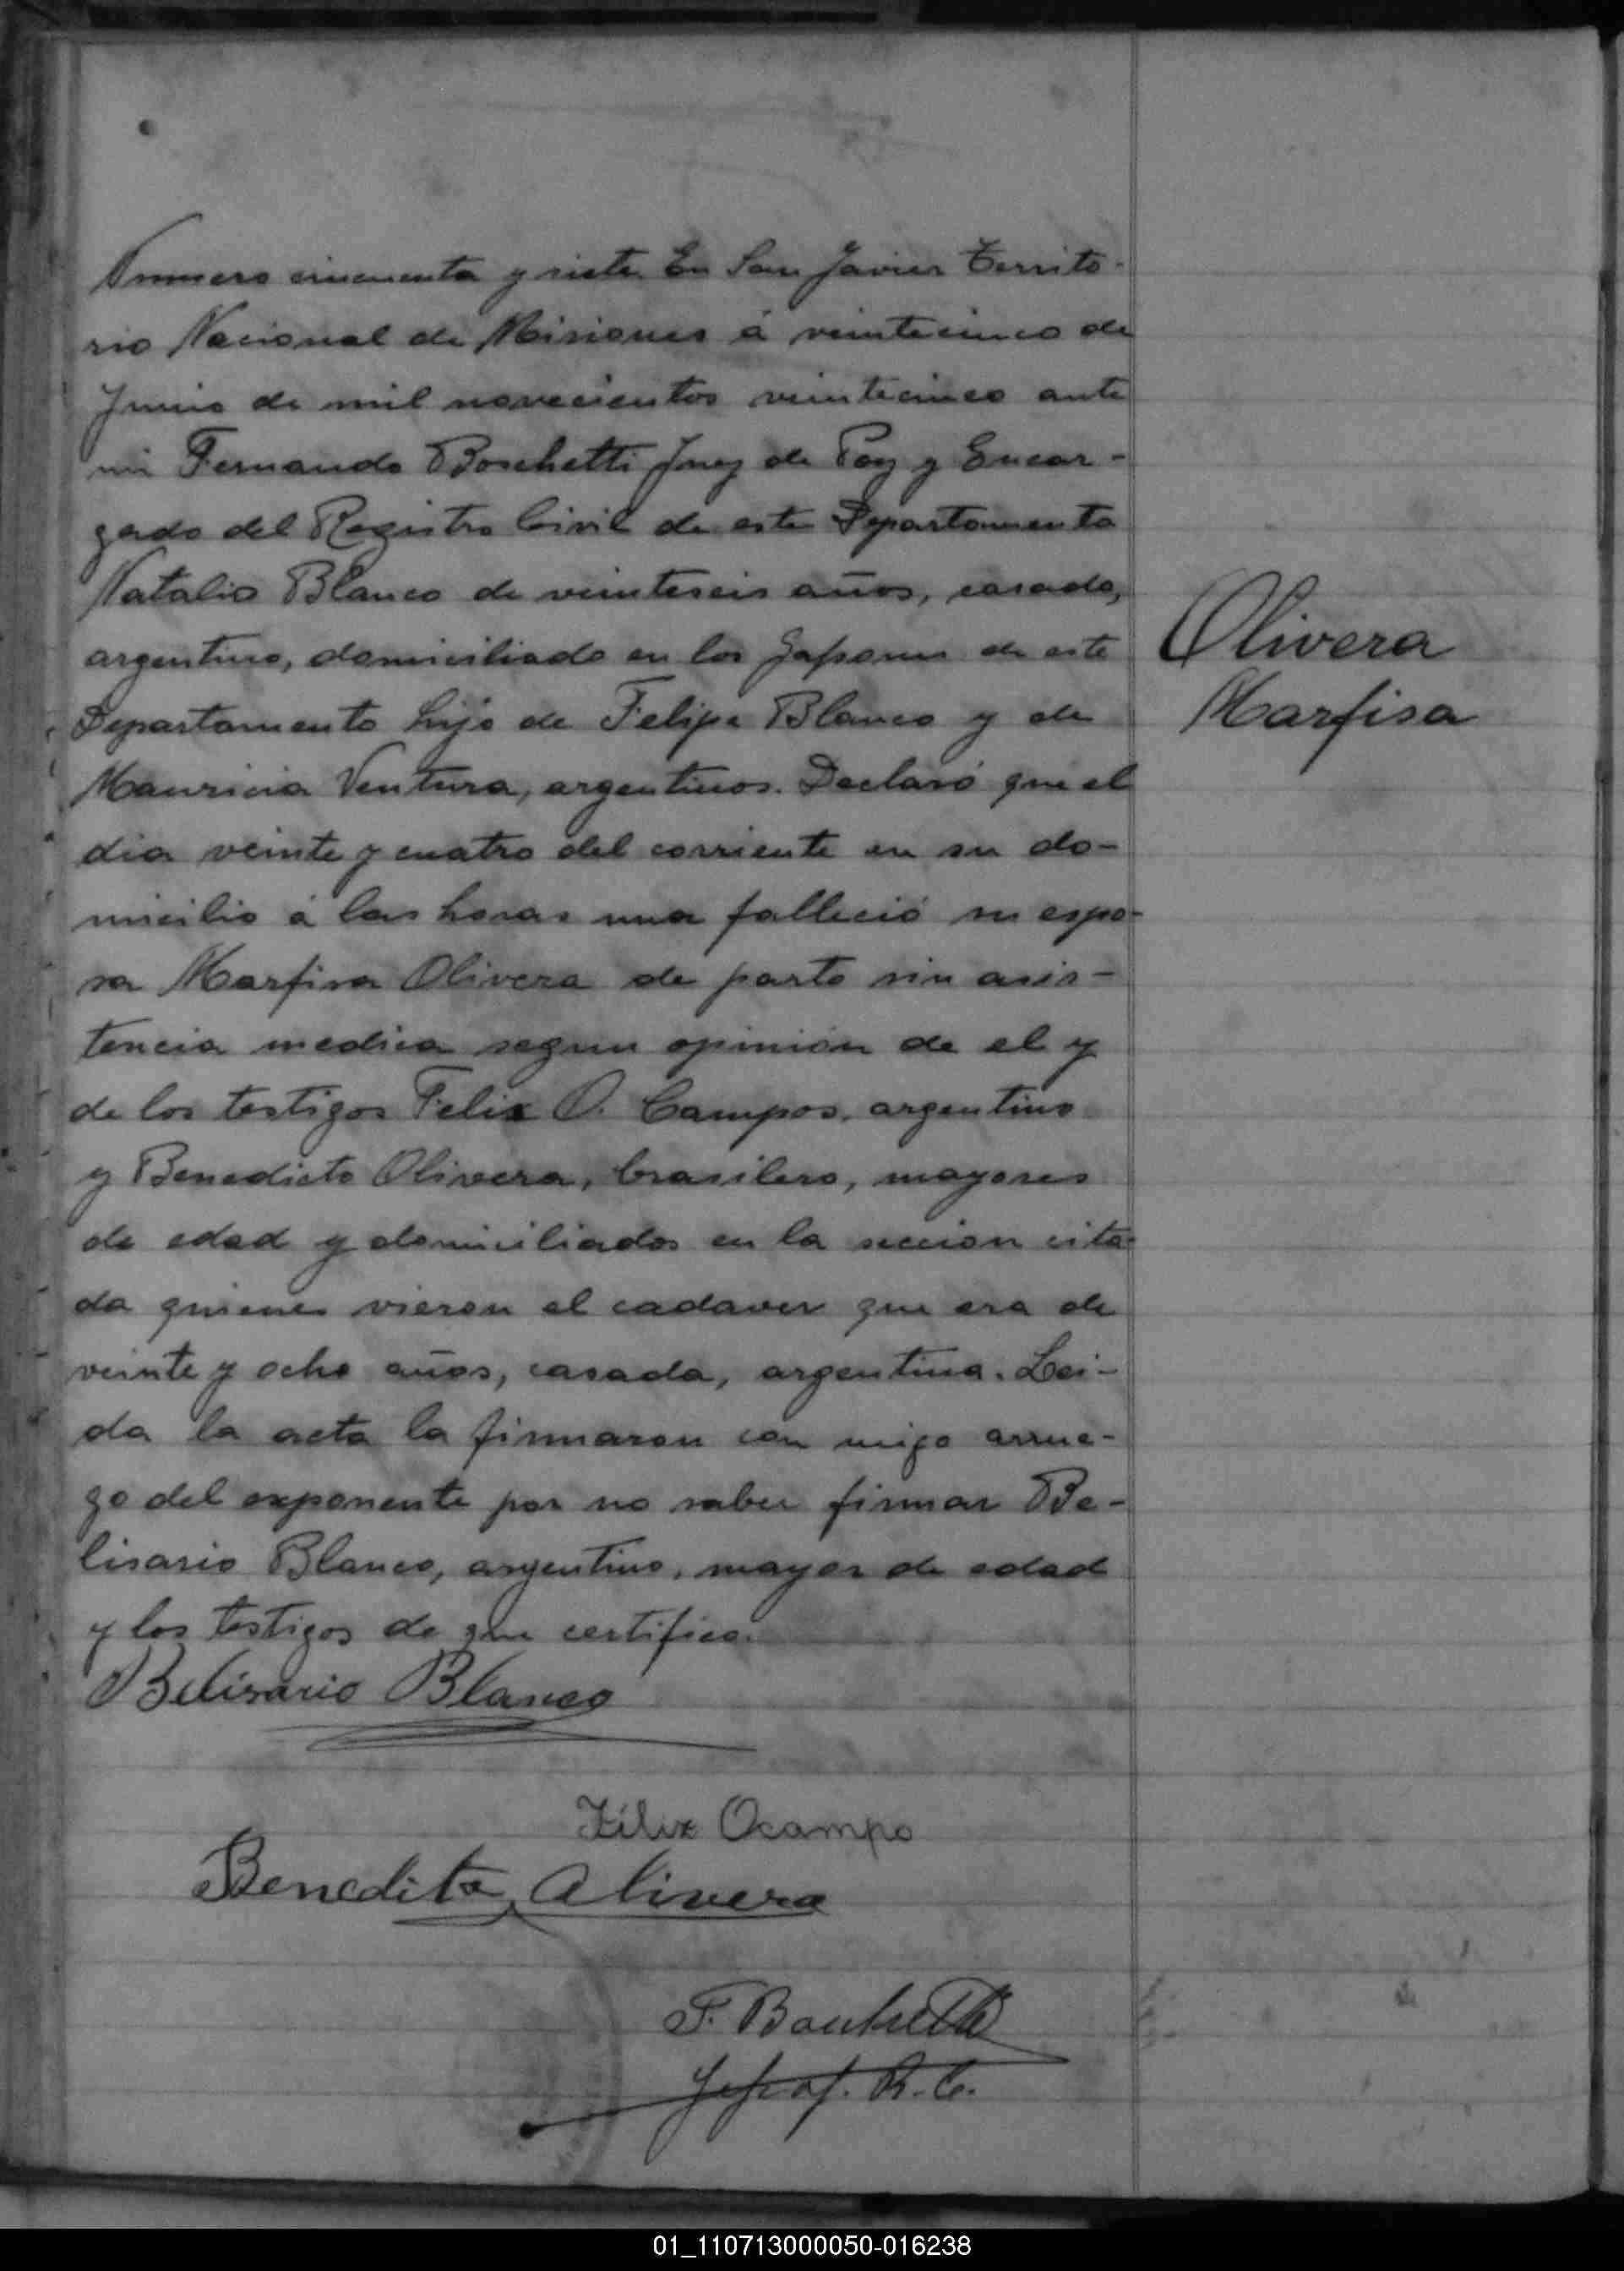 Numero cincuenta y siete. En San Javier Territo-
rio Nacional de Misiones á veintecinco de
Junio de mil novecientos veintecinco ante
mi Fernando Boschetti Juez de Paz y Encar-
gado del Registro Civil de este Departamento
Natalio Blanco de veinteseis años, casado,
argentino, domiciliado en los de este
Departamento hijo de Felipe Blanco y de
Mauricia Ventura, argentinos. Declaró que el
dia veinte y cuatro del corriente en su do-
micilio á las horas una falleció su espo-
sa Marfisa Olivera de parto sin asis-
tencia medica segun opinión de el y
de los testigos Felix O. Campos, argentino
y Benedicto Olivera, brasilero, mayores
de edad y domiciliados en la seccion cita-
da quienes vieron el cadaver que era de
veinte y ocho años, casada, argentina. Lei-
da la acta la firmaron con migo arrue-
go del exponente por no saber firmar Be-
lisario Blanco, argentino, mayor de edad
y los testigos de que certifico.
Olivera
Marfisa
Belisario Blanco
Félix Ocampo
Benedito Olivera
F. Boschetti
R.C.
01_110713000050-016238